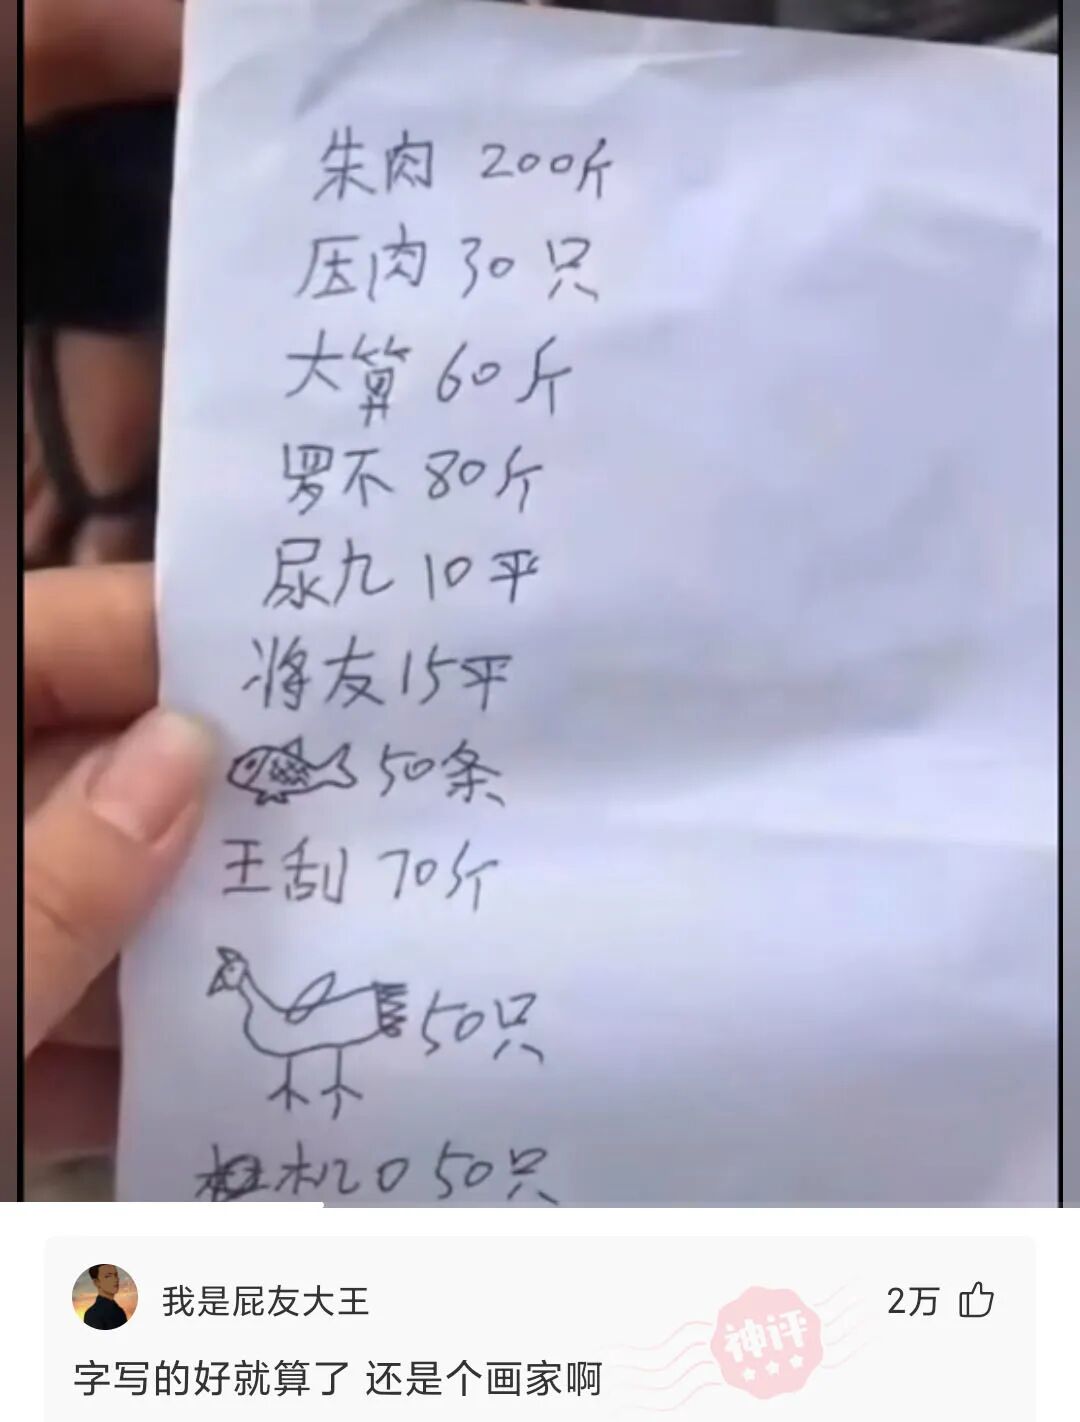 朱肉 200斤
压肉 30只
大算 60斤
罗不 80斤
尿九 10平
将友 15平
50条
王刮 70斤
50只
机0 50只
我是屁友大王
2万
神评
字写的好就算了 还是个画家啊